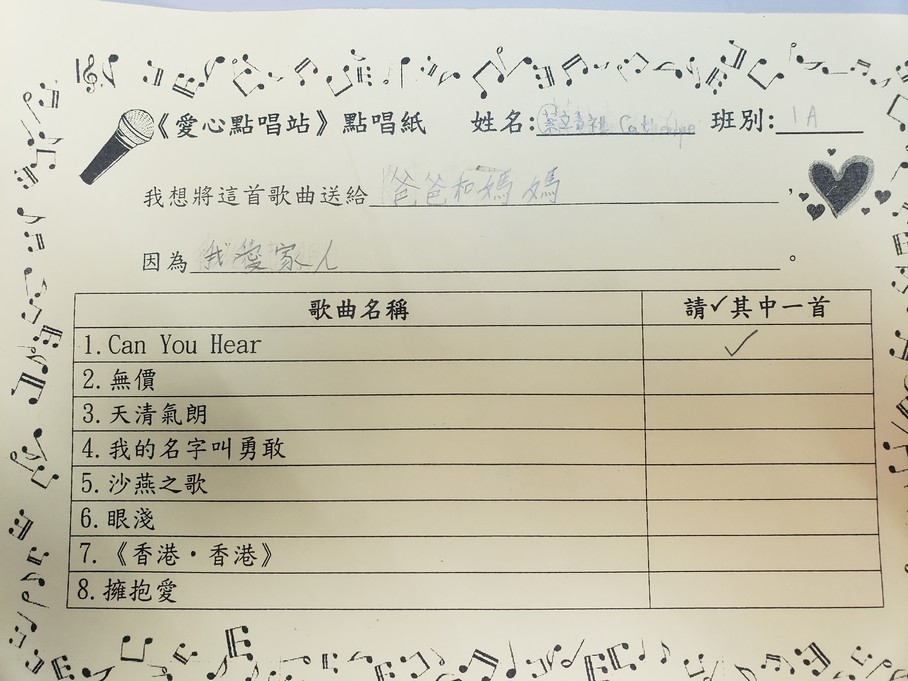 《愛心點唱站》點唱紙 姓名: 班別: 1A
我想將這首歌曲送給爸爸和媽媽，
因為我愛家人。
歌曲名稱 請✓其中一首
1. Can You Hear ✓
2. 無價
3. 天清氣朗
4. 我的名字叫勇敢
5. 沙燕之歌
6. 眼淺
7. 《香港·香港》
8. 擁抱愛